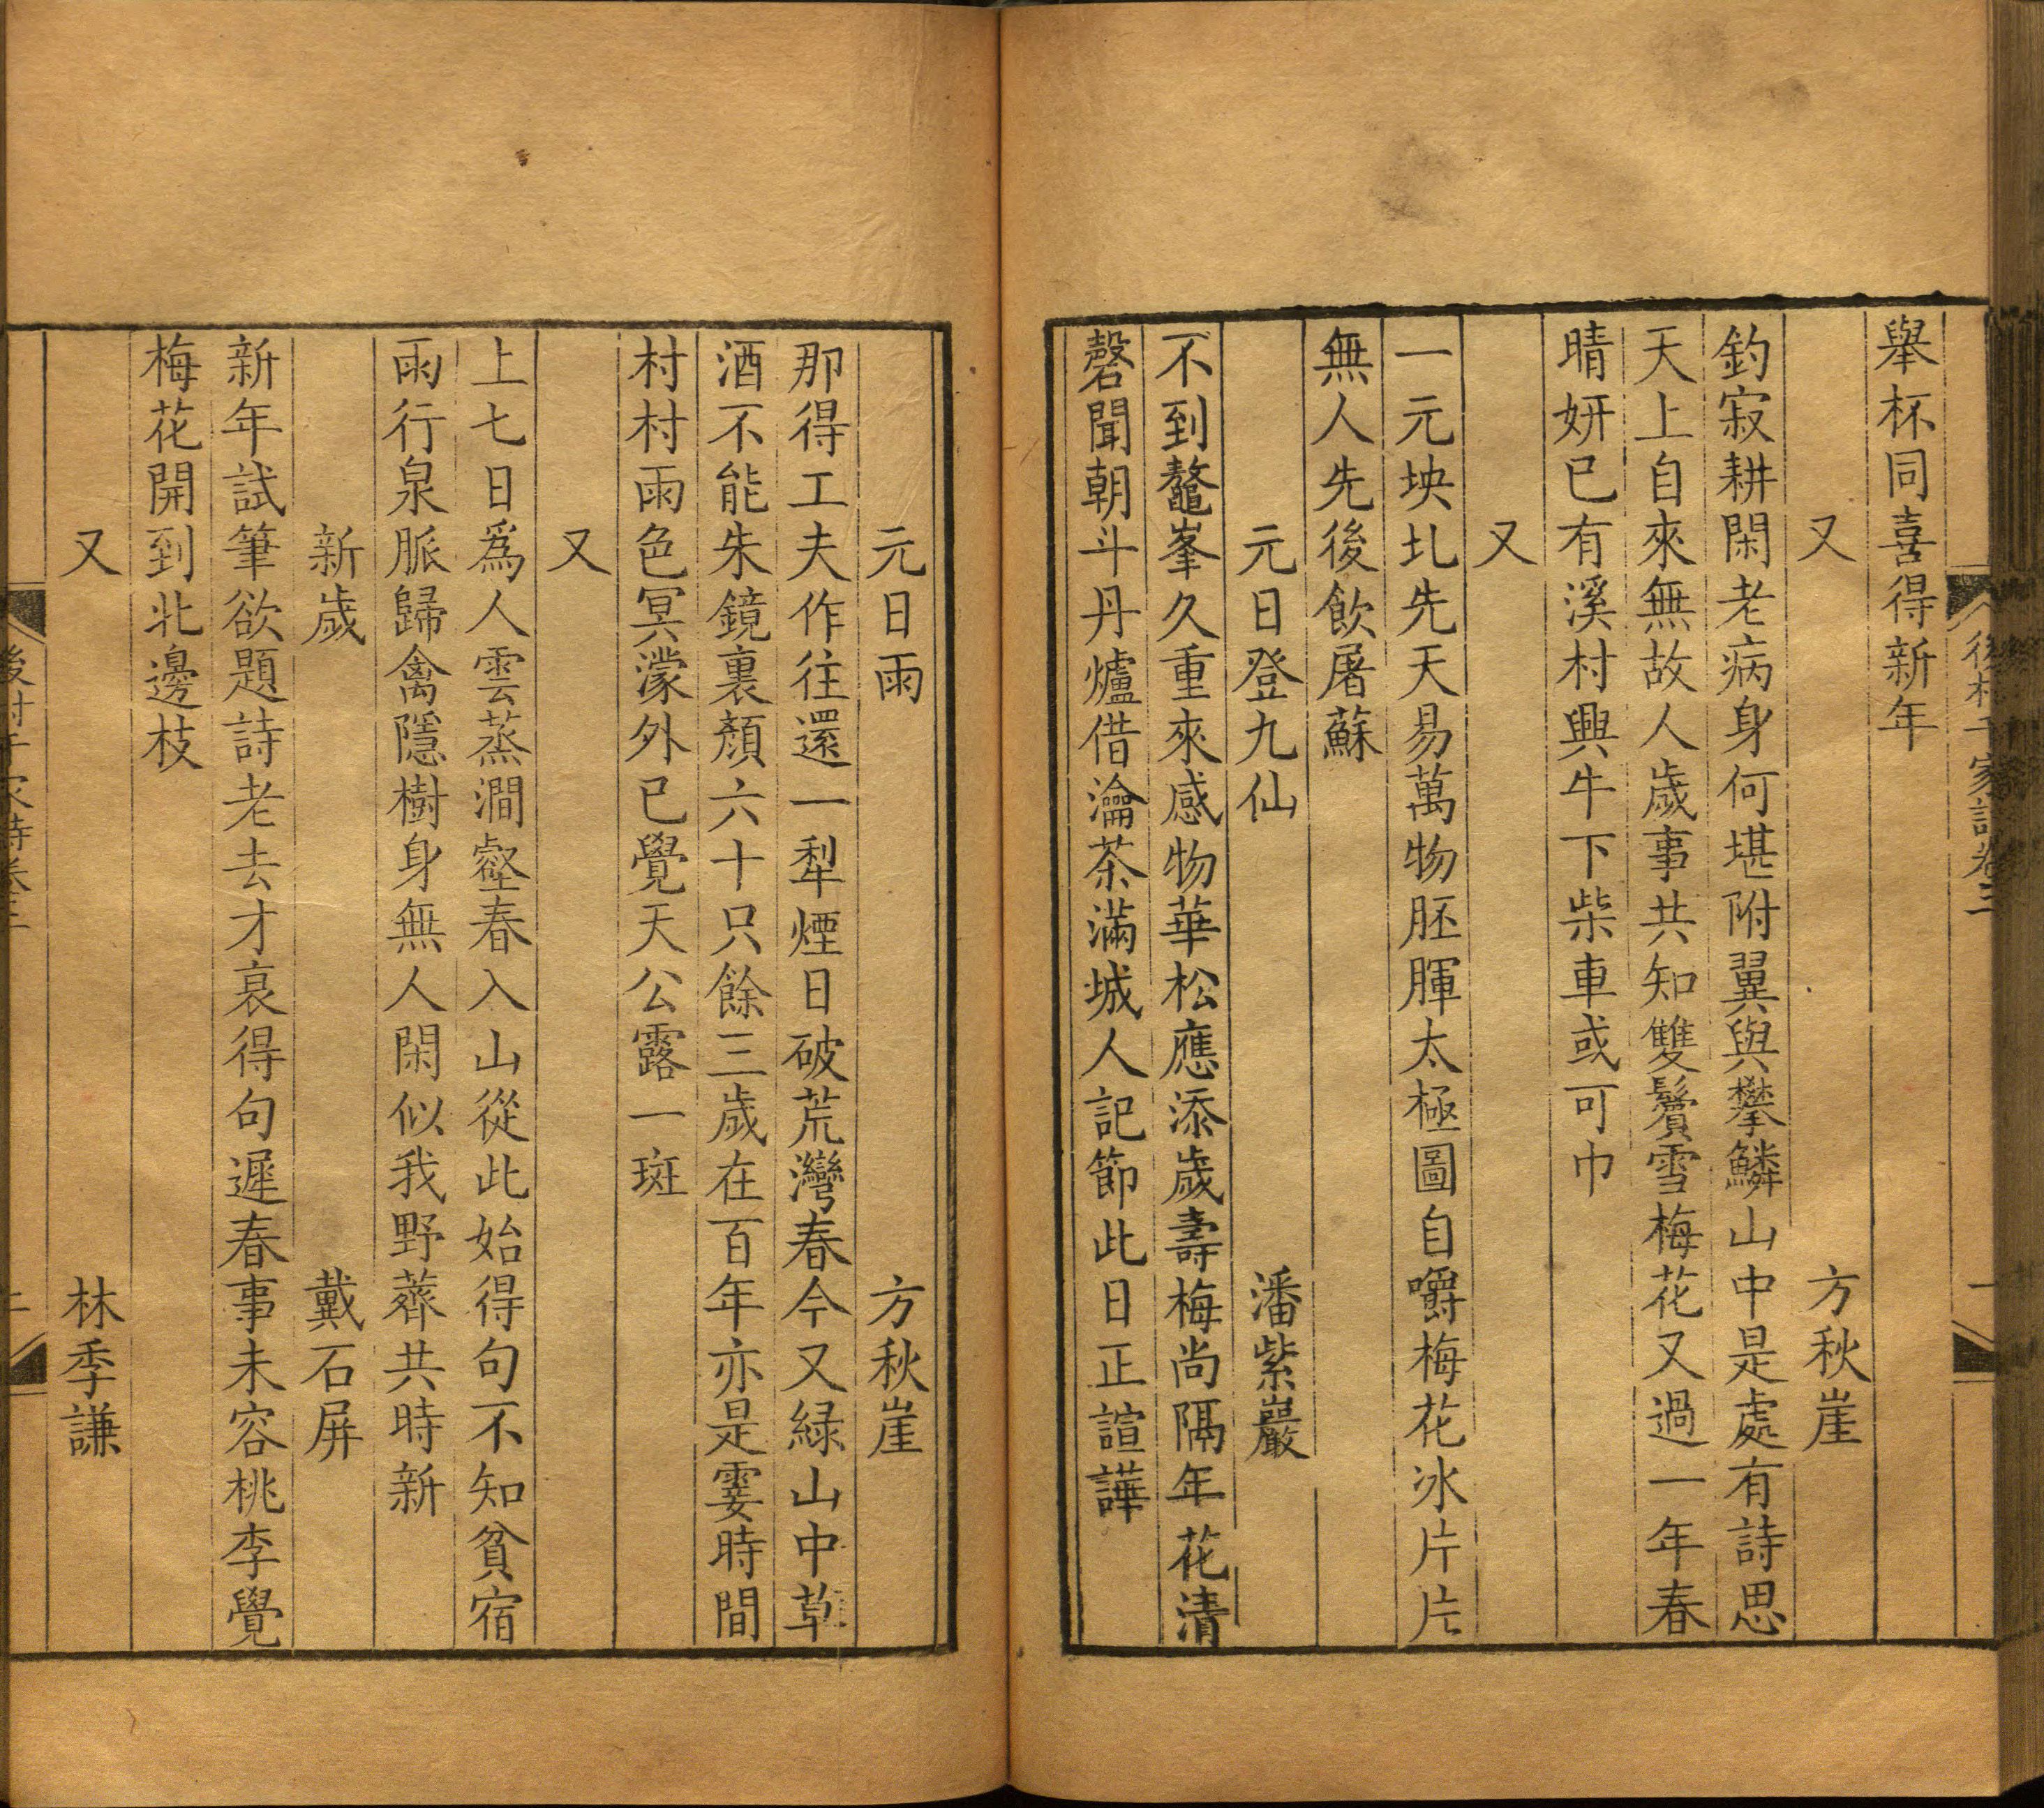 後村千家詩卷三
舉杯同喜得新年
又　方秋崖
釣寂耕閑老病身何堪附翼與攀鱗山中是處有詩思
天上自來無故人歲事共知雙鬢雪梅花又過一年春
晴妍已有溪村興牛下柴車或可巾
又
一元坱圠先天易萬物胚腪太極圖自嚼梅花冰片片
無人先後飲屠蘇
元日登九仙　潘紫巖
不到鼇峯久重來感物華松應添歲壽梅尚隔年花清
磬聞朝斗丹爐借瀹茶滿城人記節此日正諠譁
元日雨　方秋崖
那得工夫作往還一犁煙日破荒灣春今又綠山中草
酒不能朱鏡裏顏六十只餘三歲在百年亦是霎時間
村村雨色冥濛外已覺天公露一斑
又
上七日爲人雲蒸澗壑春入山從此始得句不知貧宿
雨行泉脈歸禽隱樹身無人閑似我野薺共時新
新歲　戴石屏
新年試筆欲題詩老去才衰得句遲春事未容桃李覺
梅花開到北邊枝
又　林季謙
後村千家詩卷三